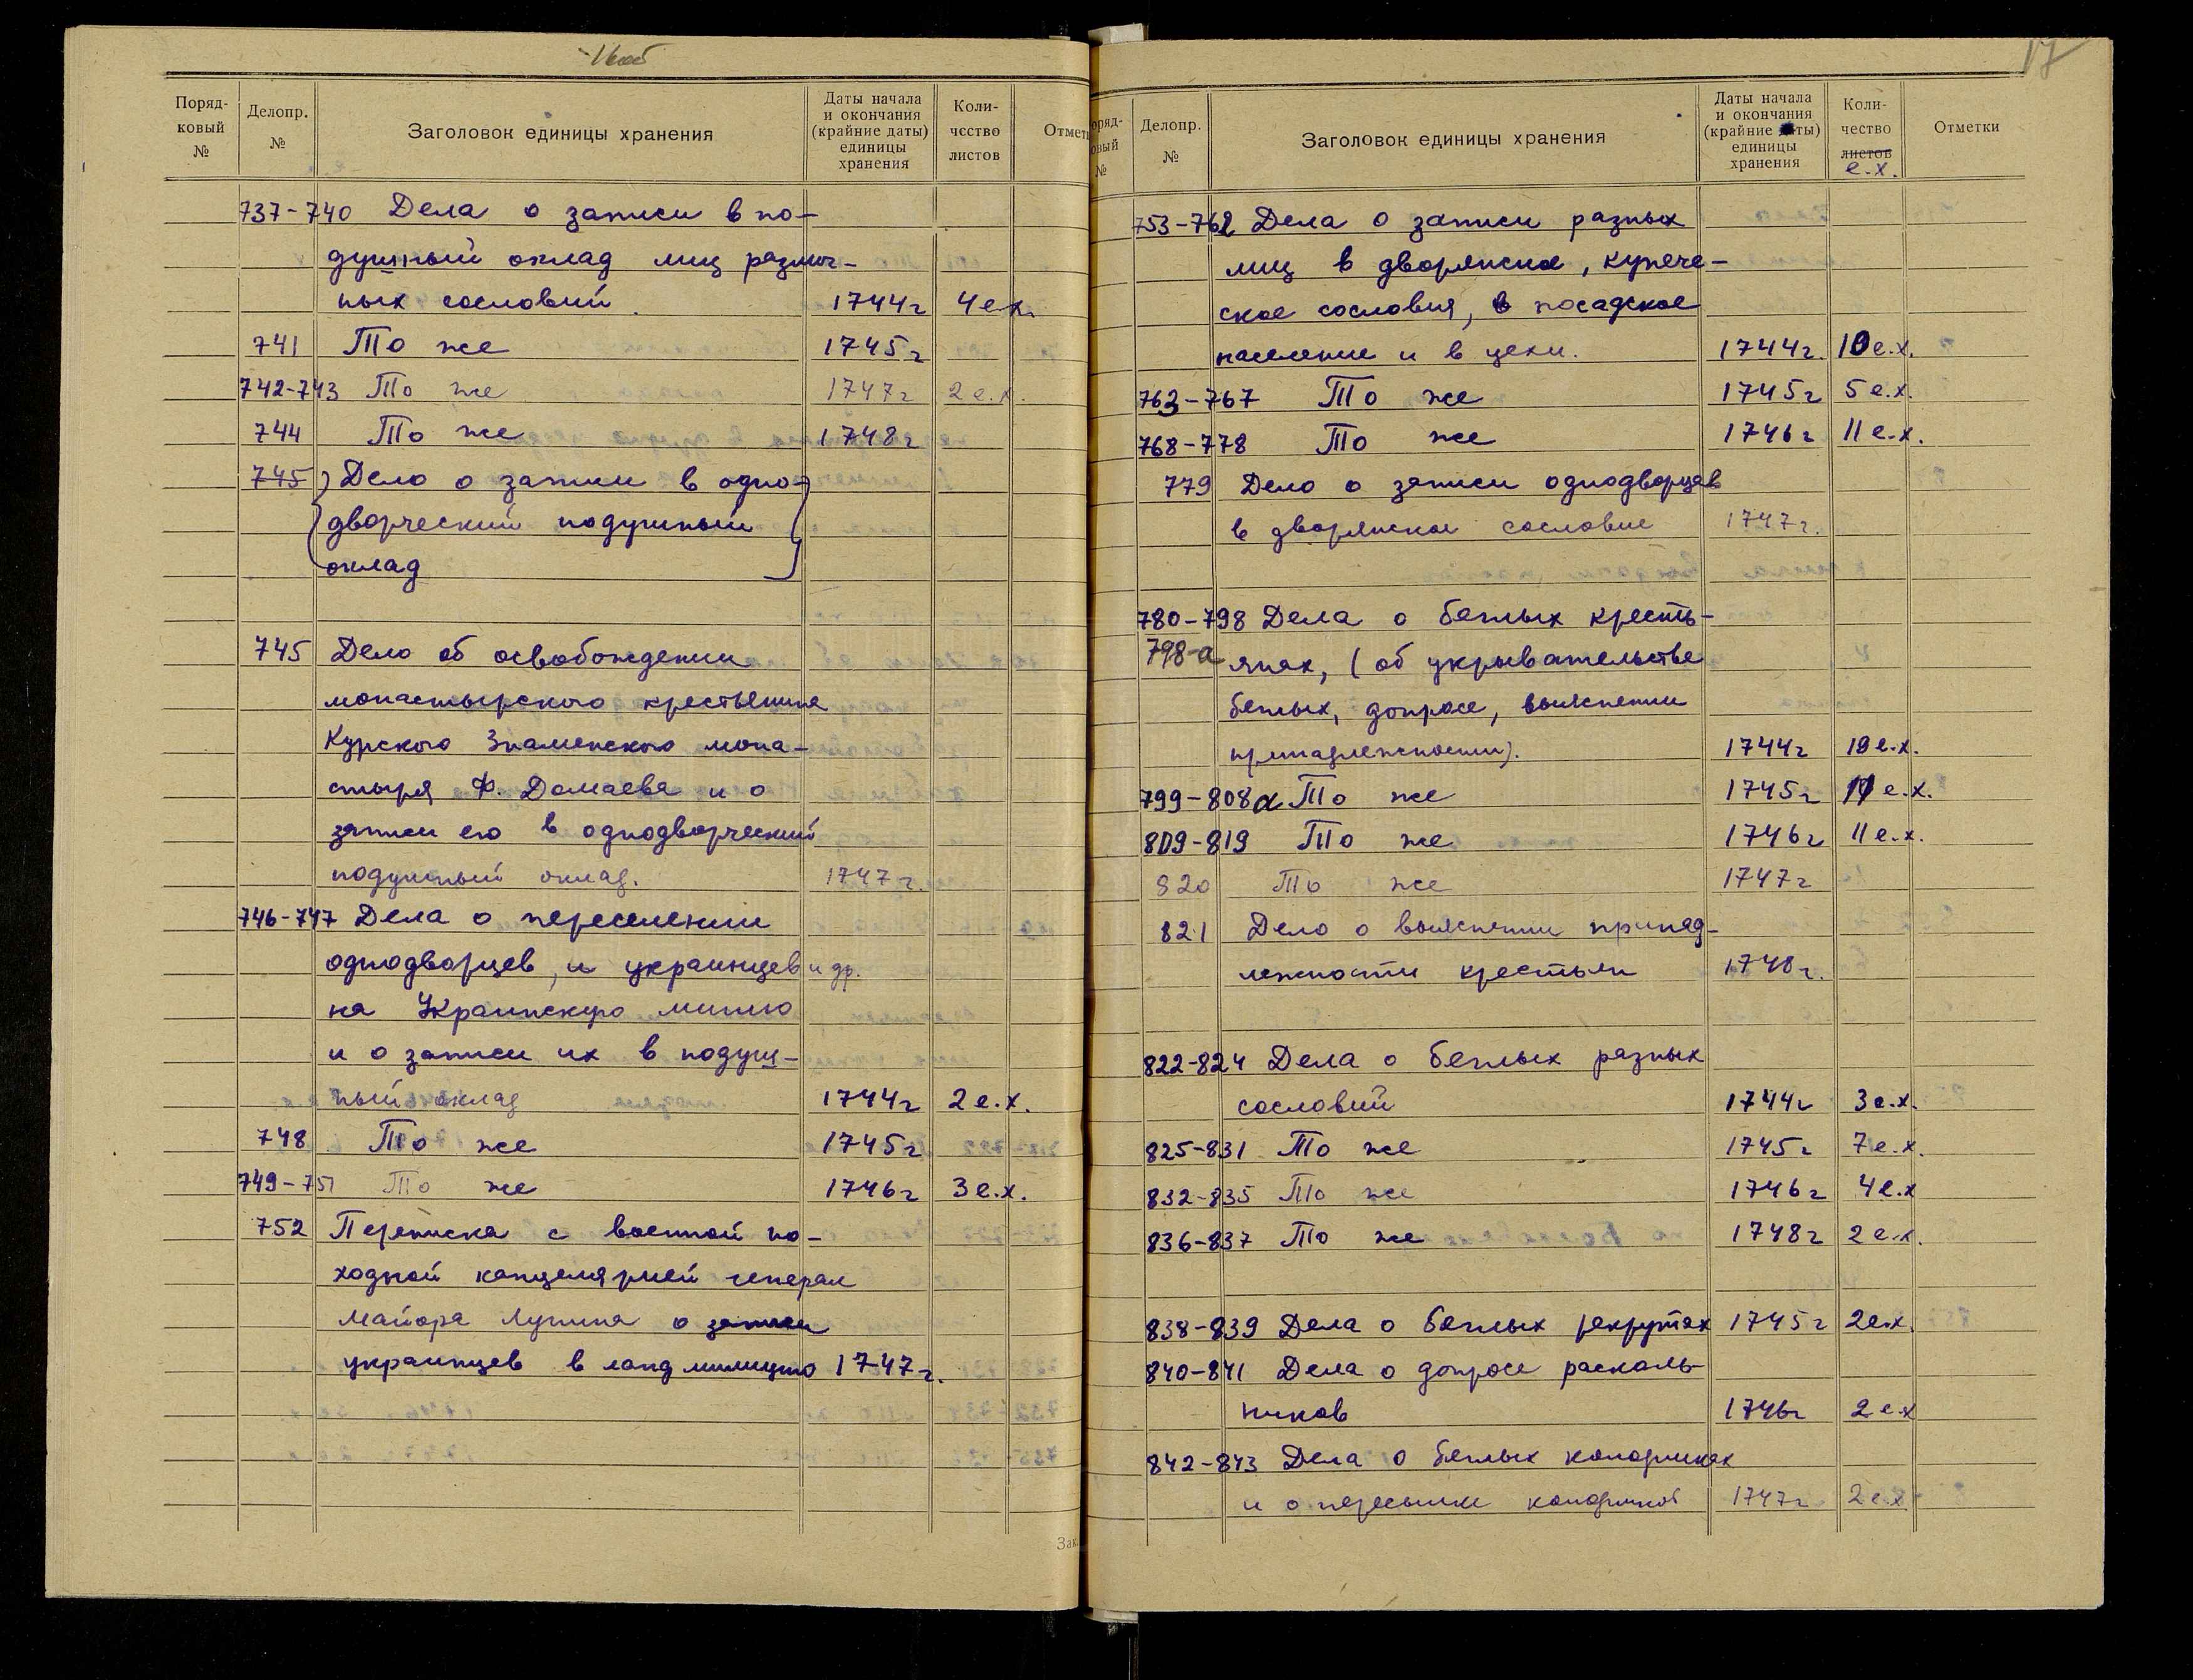 16об
Поряд-
ковый
№
Делопр.
№
Заголовок единицы хранения
Даты начала
и окончания
(крайние даты)
единицы
хранения
Коли-
чество
листов
Отметки
737-740 Дела о записи в по-
душный оклад лиц различ-
ных сословий. 1744г 4 е.х.
741 То же 1745г
742-743 То же 1747г 2 е.х.
744 То же 1748г
745 Дело о записи в одно-
дворческий подушный
оклад
745 Дело об освобождении
монастырского крестьянина
Курского Знаменского мона-
стыря Ф. Домаева и о
записи его в однодворческий
подушный оклад. 1747 г.
746-747 Дела о переселении
однодворцев, и украинцев и др.
на Украинскую линию
и о записи их в подуш-
ный оклад 1744г 2 е.х.
748 То же 1745г
749-751 То же 1746г 3 е.х.
752 Переписка с военной по-
ходной канцелярией генерал
майора Лунина о записи
украинцев в ландмилицию 1747г.
Зак.
17
Поряд-
ковый
№
Делопр.
№
Заголовок единицы хранения
Даты начала
и окончания
(крайние даты)
единицы
хранения
Коли-
чество
листов
е.х.
Отметки
753-762 Дела о записи разных
лиц в дворянское, купече-
ское сословия, в посадское
население и в цехи. 1744г. 10 е.х.
763-767 То же 1745г 5 е.х.
768-778 То же 1746г 11 е.х.
779 Дело о записи однодворцев
в дворянское сословие 1747г.
780-798 Дела о беглых кресть-
798-а янах, (об укрывательстве
беглых, допросе, выяснении
принадлежности). 1744г 19 е.х.
799-808а То же 1745г 11 е.х.
809-819 То же 1746г 11 е.х.
820 То же 1747г
821 Дело о выяснении принад-
лежности крестьян 1748г.
822-824 Дела о беглых разных
сословий 1744г 3 е.х.
825-831 То же 1745г 7 е.х.
832-835 То же 1746г 4 е.х
836-837 То же 1748г 2 е.х.
838-839 Дела о беглых рекрутах 1745г 2 е.х.
840-841 Дела о допросе расколь-
ников 1746г 2 е.х
842-843 Дела о беглых колодниках
и о пересылке колодников 1747г 2 е.х.